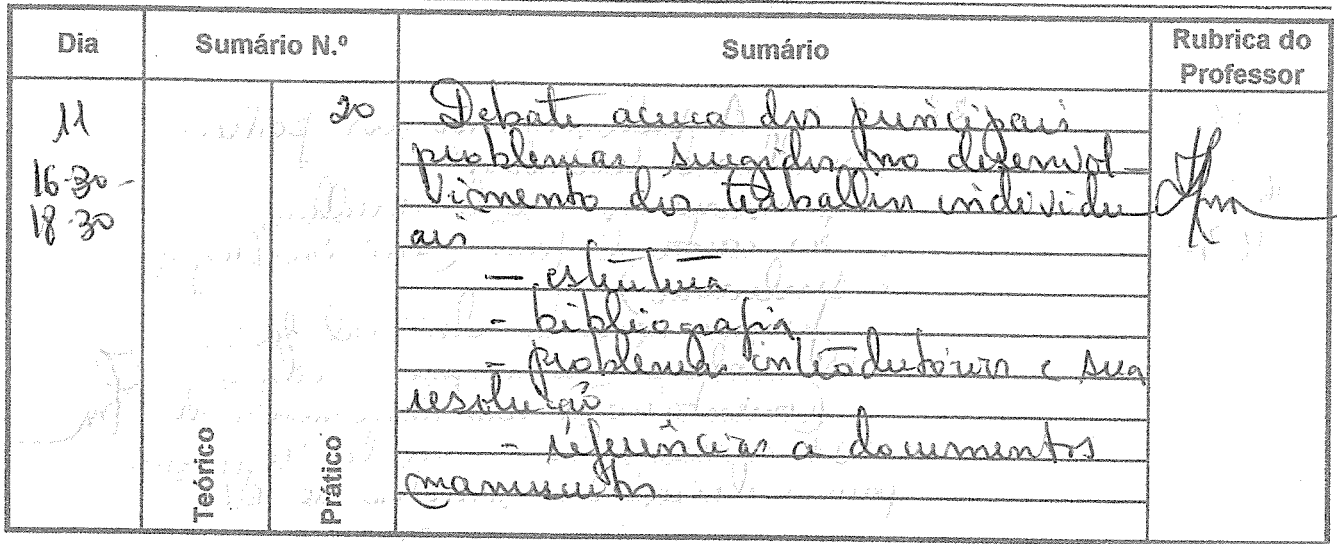 Dia Sumário N.º Sumário Rubrica do
Professor
11 20 Debate acerca dos principais
16-30- problemas surgidos no desenvol-
18.30 vimento dos trabalhos individu
ais
- estrutura
- bibliografia
- problemas introdutórios e sua
resolução
- referências a documentos
manuscritos
Teórico Prático